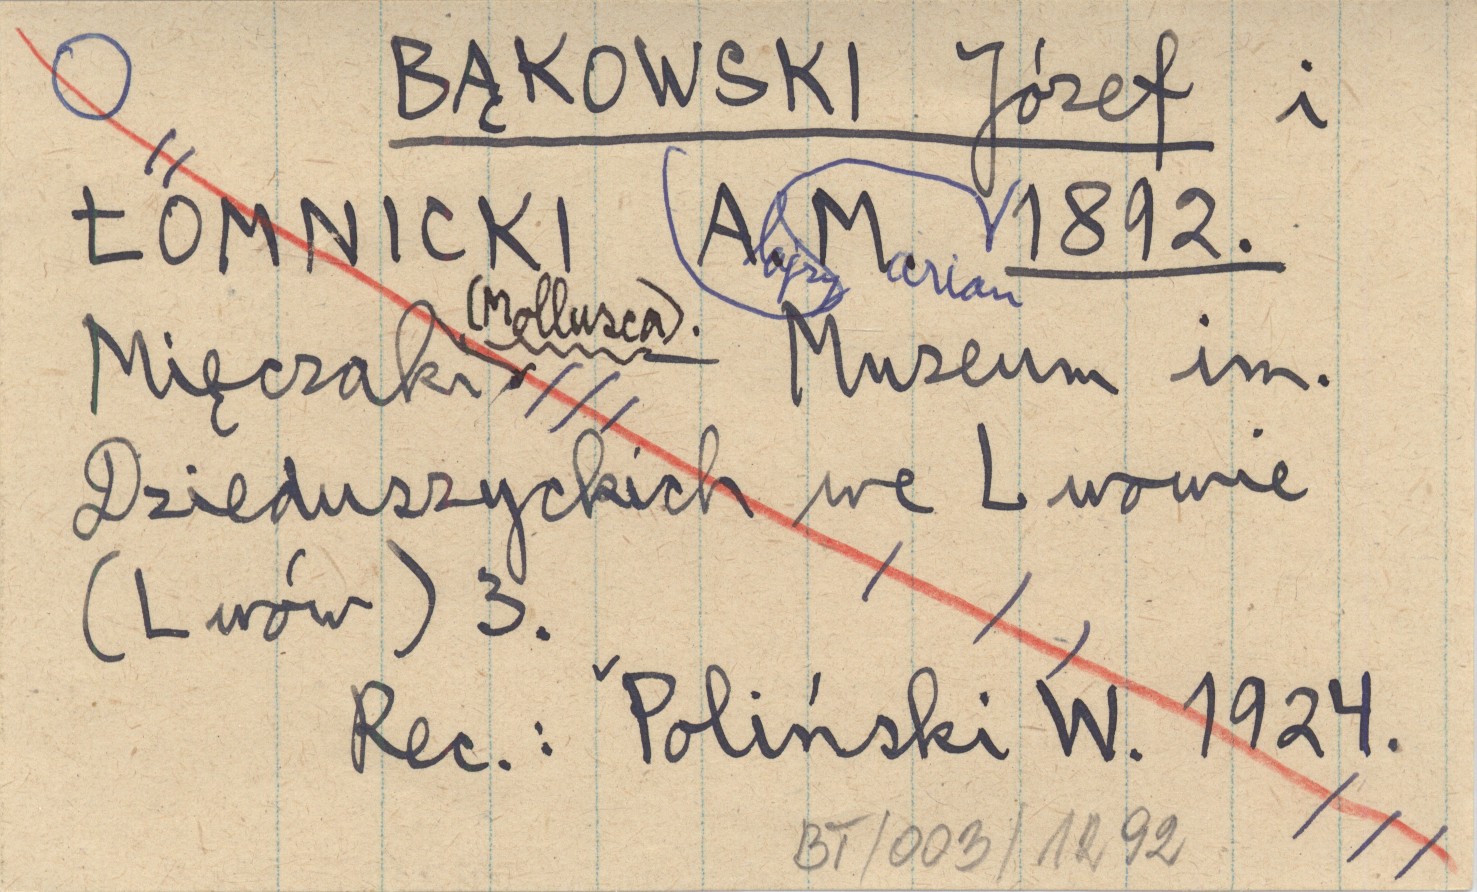 BĄKOWSKI Józef i
ŁOMNICKI A. M. 1892.
lojzy arian
(Mollusca).
Mięczaki. Muzeum im.
Dzieduszyckich we Lwowie
(Lwów) 3.
Rec.: Poliński W. 1924.
BT/003/1292